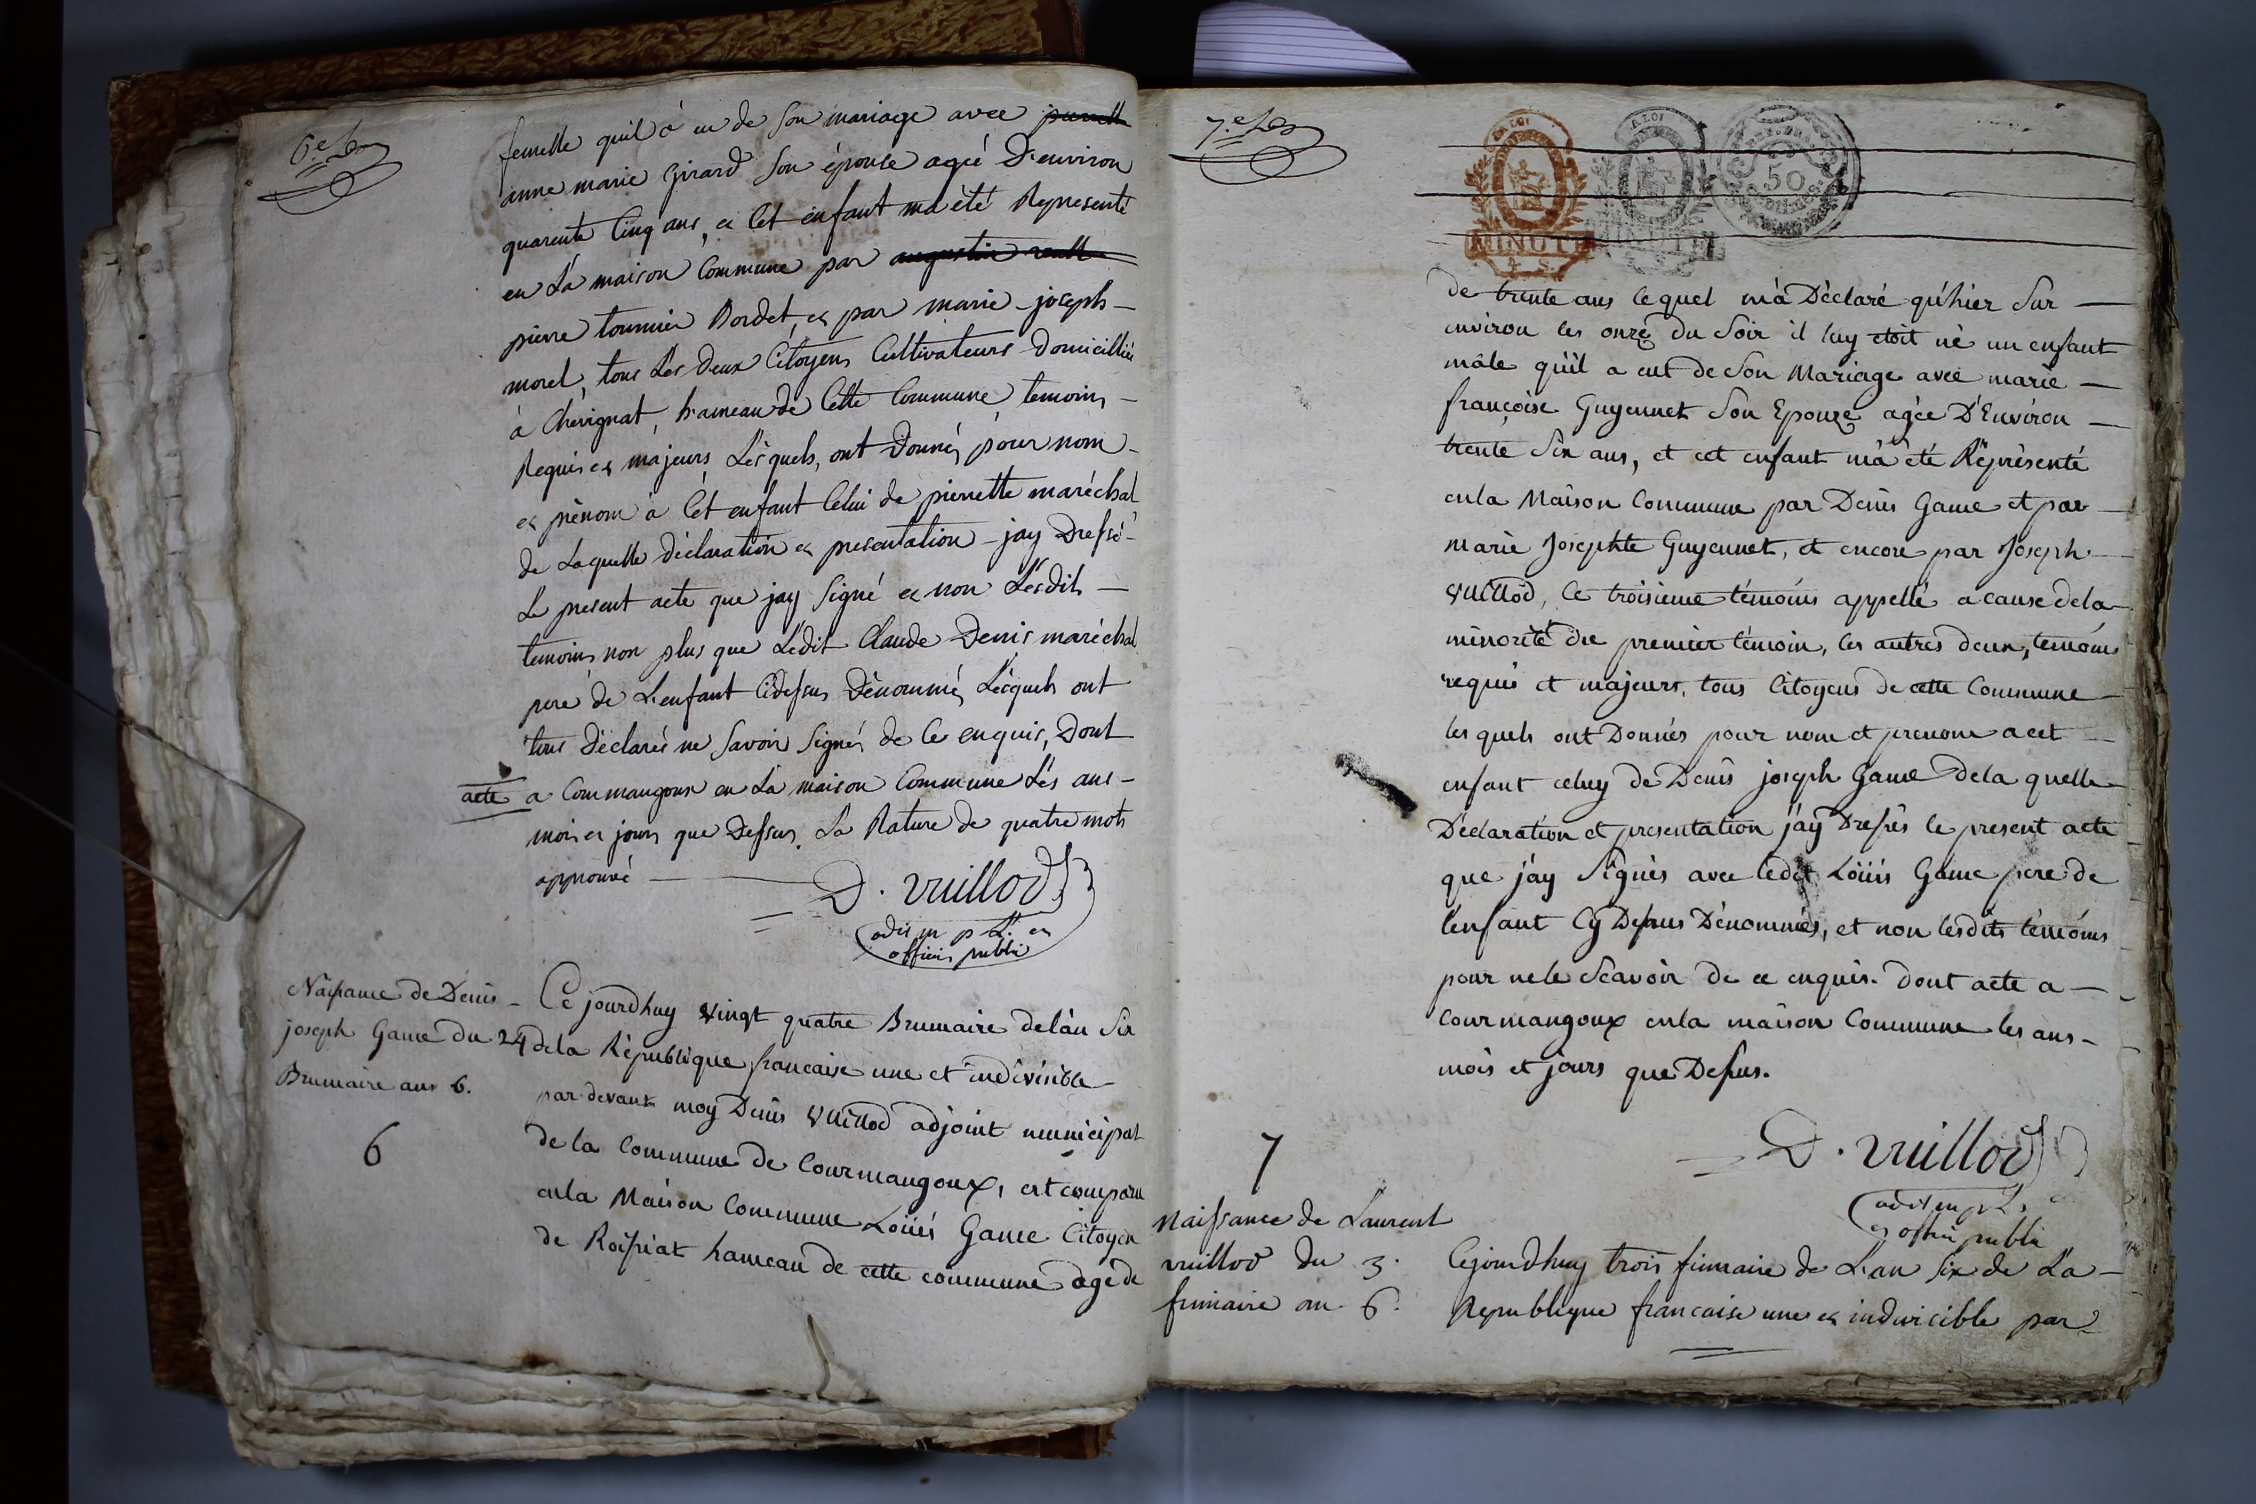 6.e
femelle quil à eu de son mariage avec pierrette
anne marie girard son épouse ageé d'environ
quarente cinq ans, et cet enfant ma été Representé
en la maison commune par augustin
pierre tournier Bordet, et par marie joseph
morel, tous les deux citoyens cultivateurs domiciliés
à chevignat, hameau de cette commune temoins
Requis et majeurs Lesquels, ont donnés pour nom
et prénom à cet enfant celui de pierrette maréchal
de Laquelle déclaration et presentation jay Dressé
Le present acte que jay signé et non Lesdits
temoins non plus que Ledit Claude Denis maréchal
pere de L'enfant cidessus dénommés Lesquels ont
tous déclarés ne savoir signés de ce enquis, Dont
acte a Courmangoux en La maison commune Les ans
mois et jours que Dessus. La Rature de quatre mots
approuvé
D. vuillod
adjt m p l. et
officier public
Naissance de Denis
joseph Game du 24
Brumaire ans 6.
6
Ce jourdhuy vingt quatre Brumaire delàn six
dela République francaise une et indivisible
par devant moy Denis Vuillod adjoint municipal
de la commune de Courmangoux, est comparu
enla Maison Commune Loüis Game Citoyen
de Roissiat hameau de cette commune age de
7.e
LA LOI
LA LOI
50
MINUTE
MINUTE
4 S
de trente ans lequel m'à Déclaré qu'hier sur
environ les onze du soir il luy étoit né un enfant
mâle qu'il a eut de son Mariage avec marie
françoise Guyennet son Epouze agée D'Environ
trente six ans, et cet enfant m'à été Réprésenté
enla Maison Commune par Denis Game et par
marie Josephte Guyennet, et encore par Joseph
Vuillod, ce troisieme témoins appellé a cause dela
minorité du premier témoin, les autres deux, temoins
requis et majeurs, tous Citoyens de cette Commune
les quels ont Donnés pour nom et prenom a cet
enfant celuy de Denis joseph Game dela quelle
Déclaration et presentation j'ay Dressés le present acte
que j'ay Signés avec ledit Loüis Game pere de
l'enfant Cy Dessus Dénommés, et non lesdits témoins
pour nele Scavoir de ce enquis. dont acte a
Courmangoux enla maison Commune les ans
mois et jours que Dessus.
D. vuillod
adjt m p l.
et officier public
7
Naissance de Laurent
vuillod du 3.
frimaire an 6.
Cejourdhuy trois frimaire de L'an six de La
Republique francaise une et indivicible par